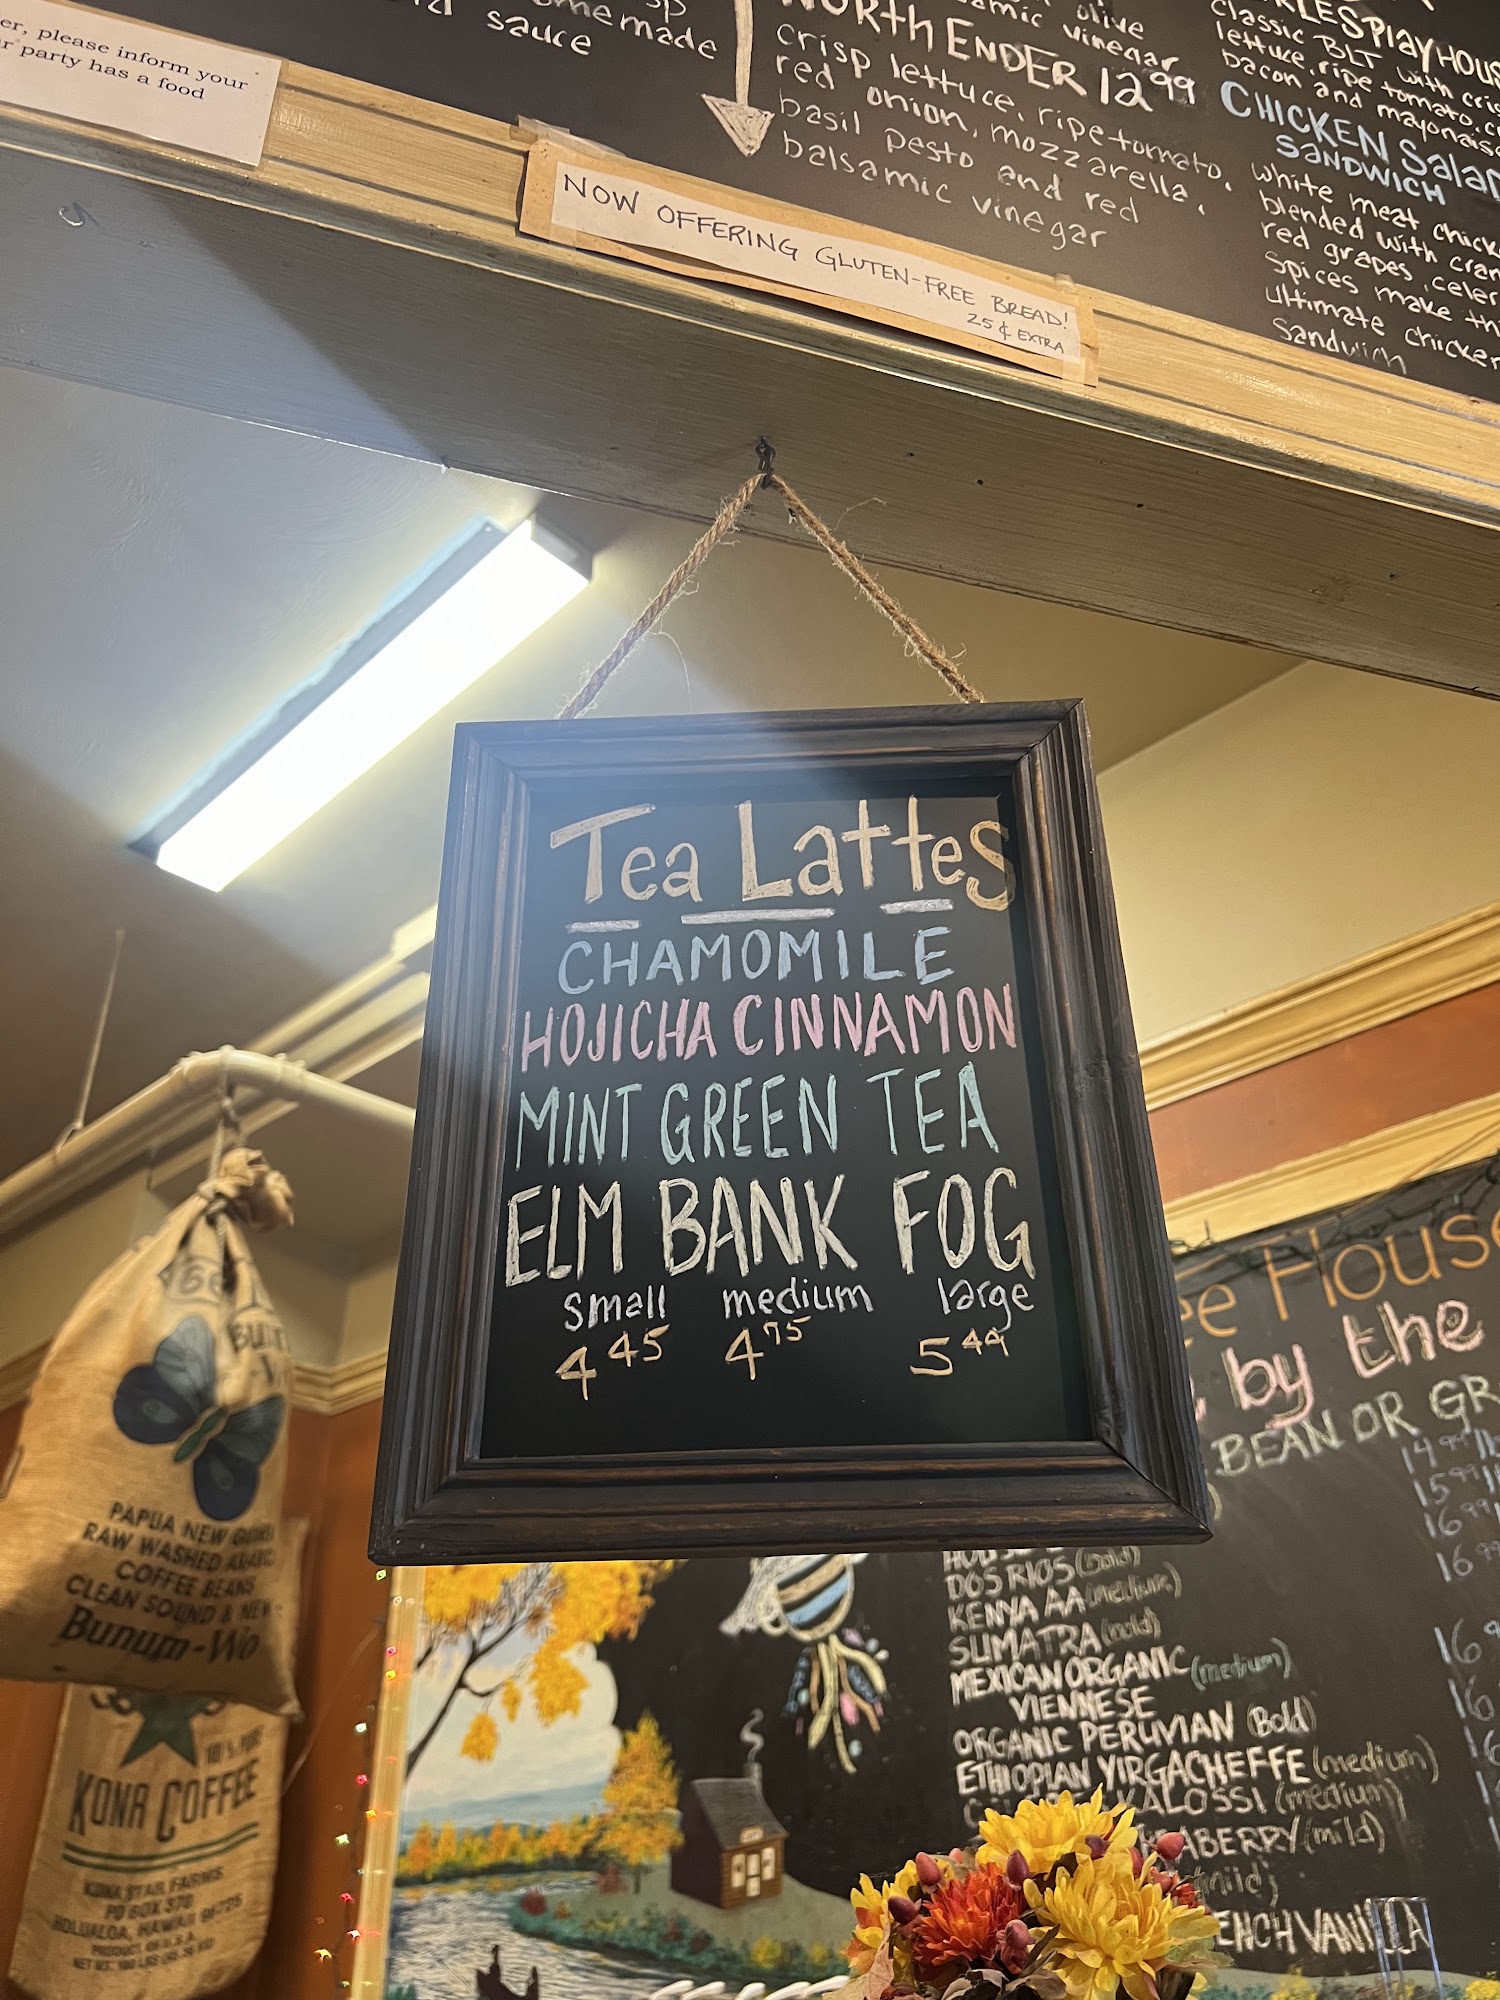 er, please inform your
party has a food
homemade
sauce
olive
vinegar
NORTH ENDER 12.99
crisp lettuce, ripe tomato,
red onion, mozzarella,
basil pesto and red
balsamic vinegar
classic BLT with
lettuce, ripe tomato,
bacon and mayonaise
CHICKEN Salad
SANDWICH
white meat
blended with
red grapes, celery
spices make
ultimate chicken
Sandwich
NOW OFFERING GLUTEN-FREE BREAD!
25¢ EXTRA
Tea Lattes
CHAMOMILE
HOJICHA CINNAMON
MINT GREEN TEA
ELM BANK FOG
small medium large
4 45 4 75 5 44
PAPUA NEW GUINEA
RAW WASHED ARABICA
COFFEE BEANS
CLEAN SOUND & NEW
Bunum-Wo
100% PURE
KONA COFFEE
KONA STAR FARMS
PO BOX 370
HOLUALOA, HAWAII 96725
House
by the
BEAN OR
DOS RIOS (bold)
KENYA AA (medium)
SUMATRA
MEXICAN ORGANIC (medium)
VIENNESE
ORGANIC PERUVIAN (Bold)
ETHIOPIAN YIRGACHEFFE (medium)
KALOSSI (medium)
(mild)
(mild)
VANILLA